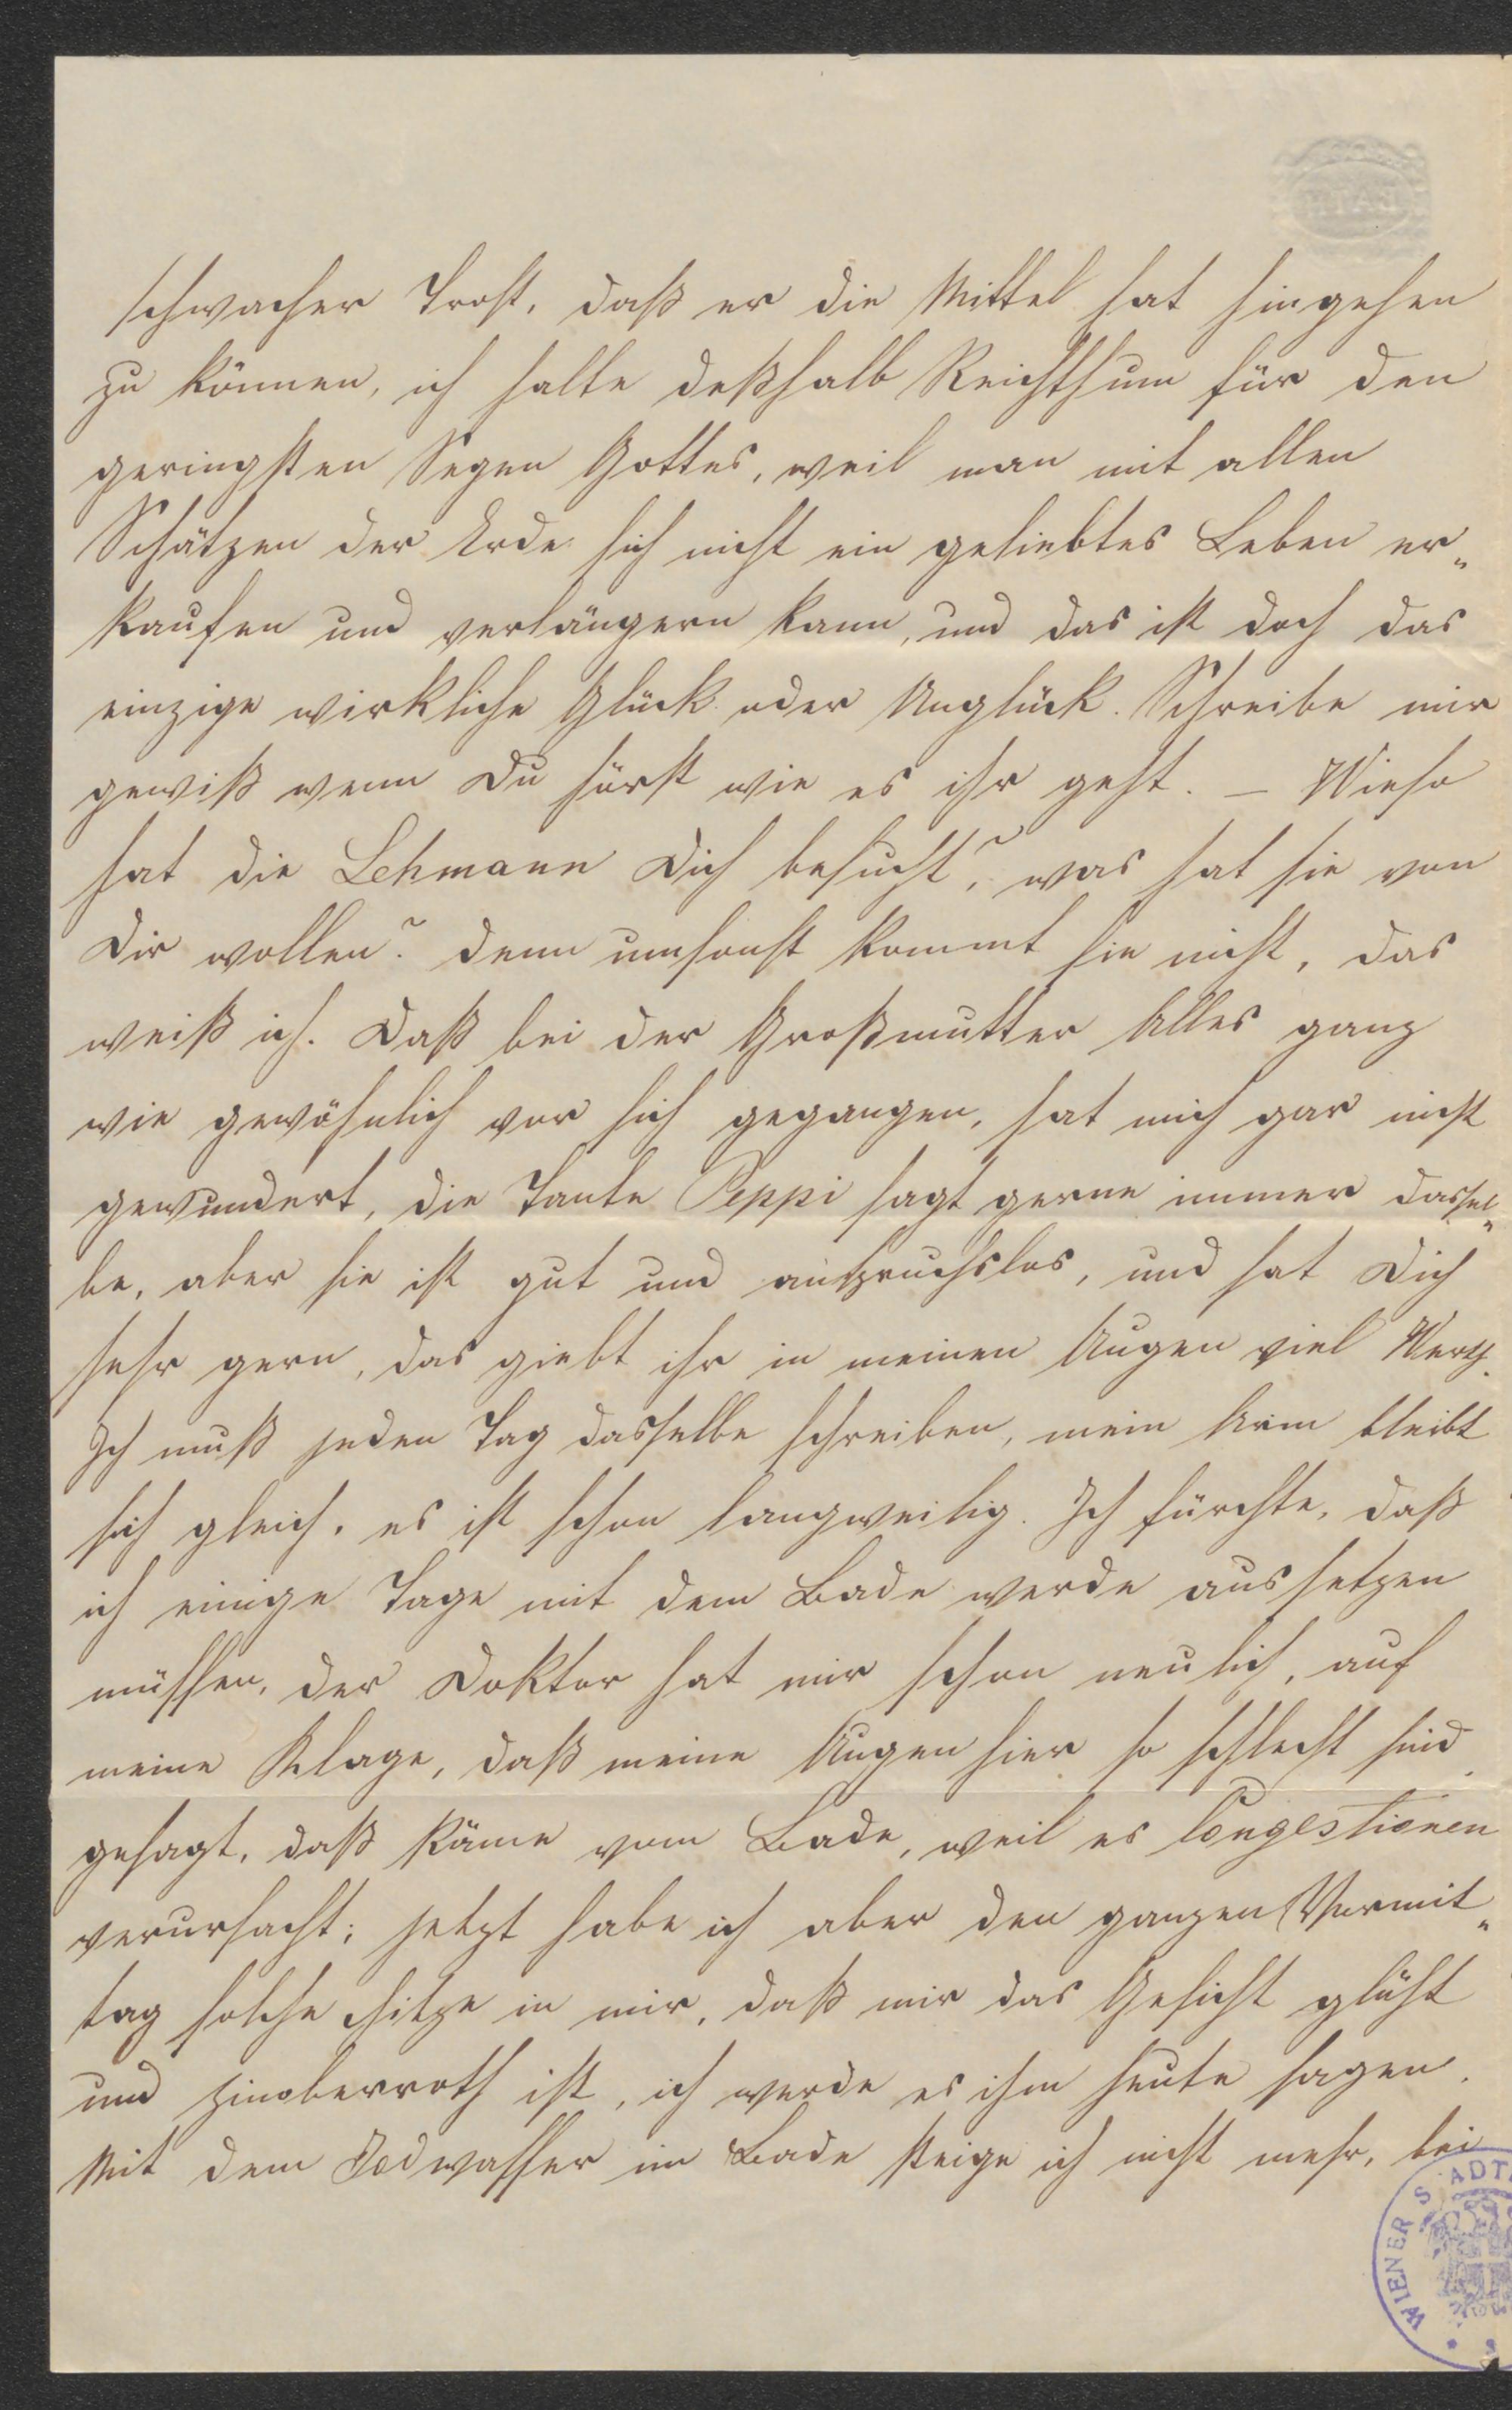 schwacher Trost, daß er die Mittel hat hingehen
zu können, ich halte deßhalb Reichthum für den
geringsten Segen Gottes, weil man mit allen
Schätzen der Erde sich nicht ein geliebtes Leben er„
kaufen und verlängern kann, und das ist doch das
einzige wirkliche Glück oder Unglück. Schreibe mir
gewiß wenn Du hörst wie es ihr geht. – Wieso
hat die Lehmann Dich besucht, was hat sie von
Dir wollen? denn umsonst kommt sie nicht, das
weiß ich. Daß bei der Großmutter Alles ganz
wie gewöhnlich vor sich gegangen, hat mich gar nicht
gewundert, die Tante Peppi sagt gerne immer dassel„
be, aber sie ist gut und anspruchslos, und hat Dich
sehr gern, das giebt ihr in meinen Augen viel Werth.
Ich muß jeden Tag dasselbe schreiben, mein Arm bleibt
sich gleich, es ist schon langweilig. Ich fürchte, daß
ich einige Tage mit dem Bade werde aussetzen
müssen, der Doktor hat mir schon neulich, auf
meine Klage, daß meine Augen hier so schlecht sind
gesagt, daß käme vom Bade, weil es Congestionen
verursacht; jetzt habe ich aber den ganzen Vormit„
tag solche Hitze in mir, daß mir das Gesicht glüht
und zinoberroth ist, ich werde es ihm heute sagen.
Mit dem Jodwasser im Bade steige ich nicht mehr, bei
WIENER STADT